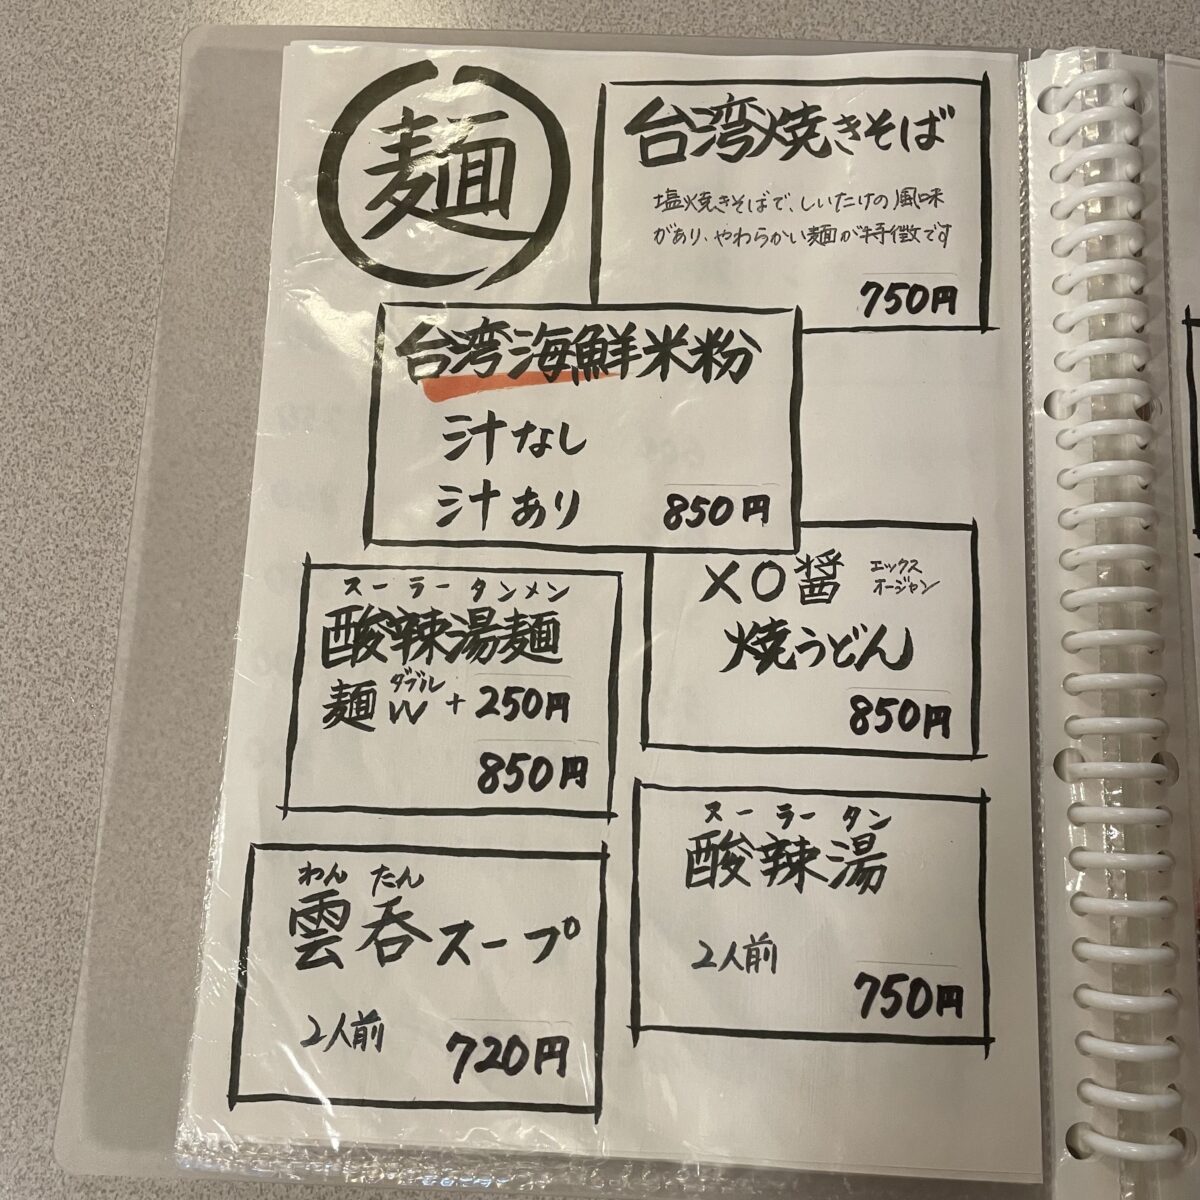 麺
台湾焼きそば
塩焼きそばで、しいたけの風味
があり、やわらかい麺が特徴です
750円
台湾海鮮米粉
汁なし
汁あり 850円
XO醤 エックス
オージャン
焼うどん
850円
スーラータンメン
酸辣湯麺
ダブル
麺W+250円
850円
スーラータン
酸辣湯
2人前
750円
わんたん
雲呑スープ
2人前 720円